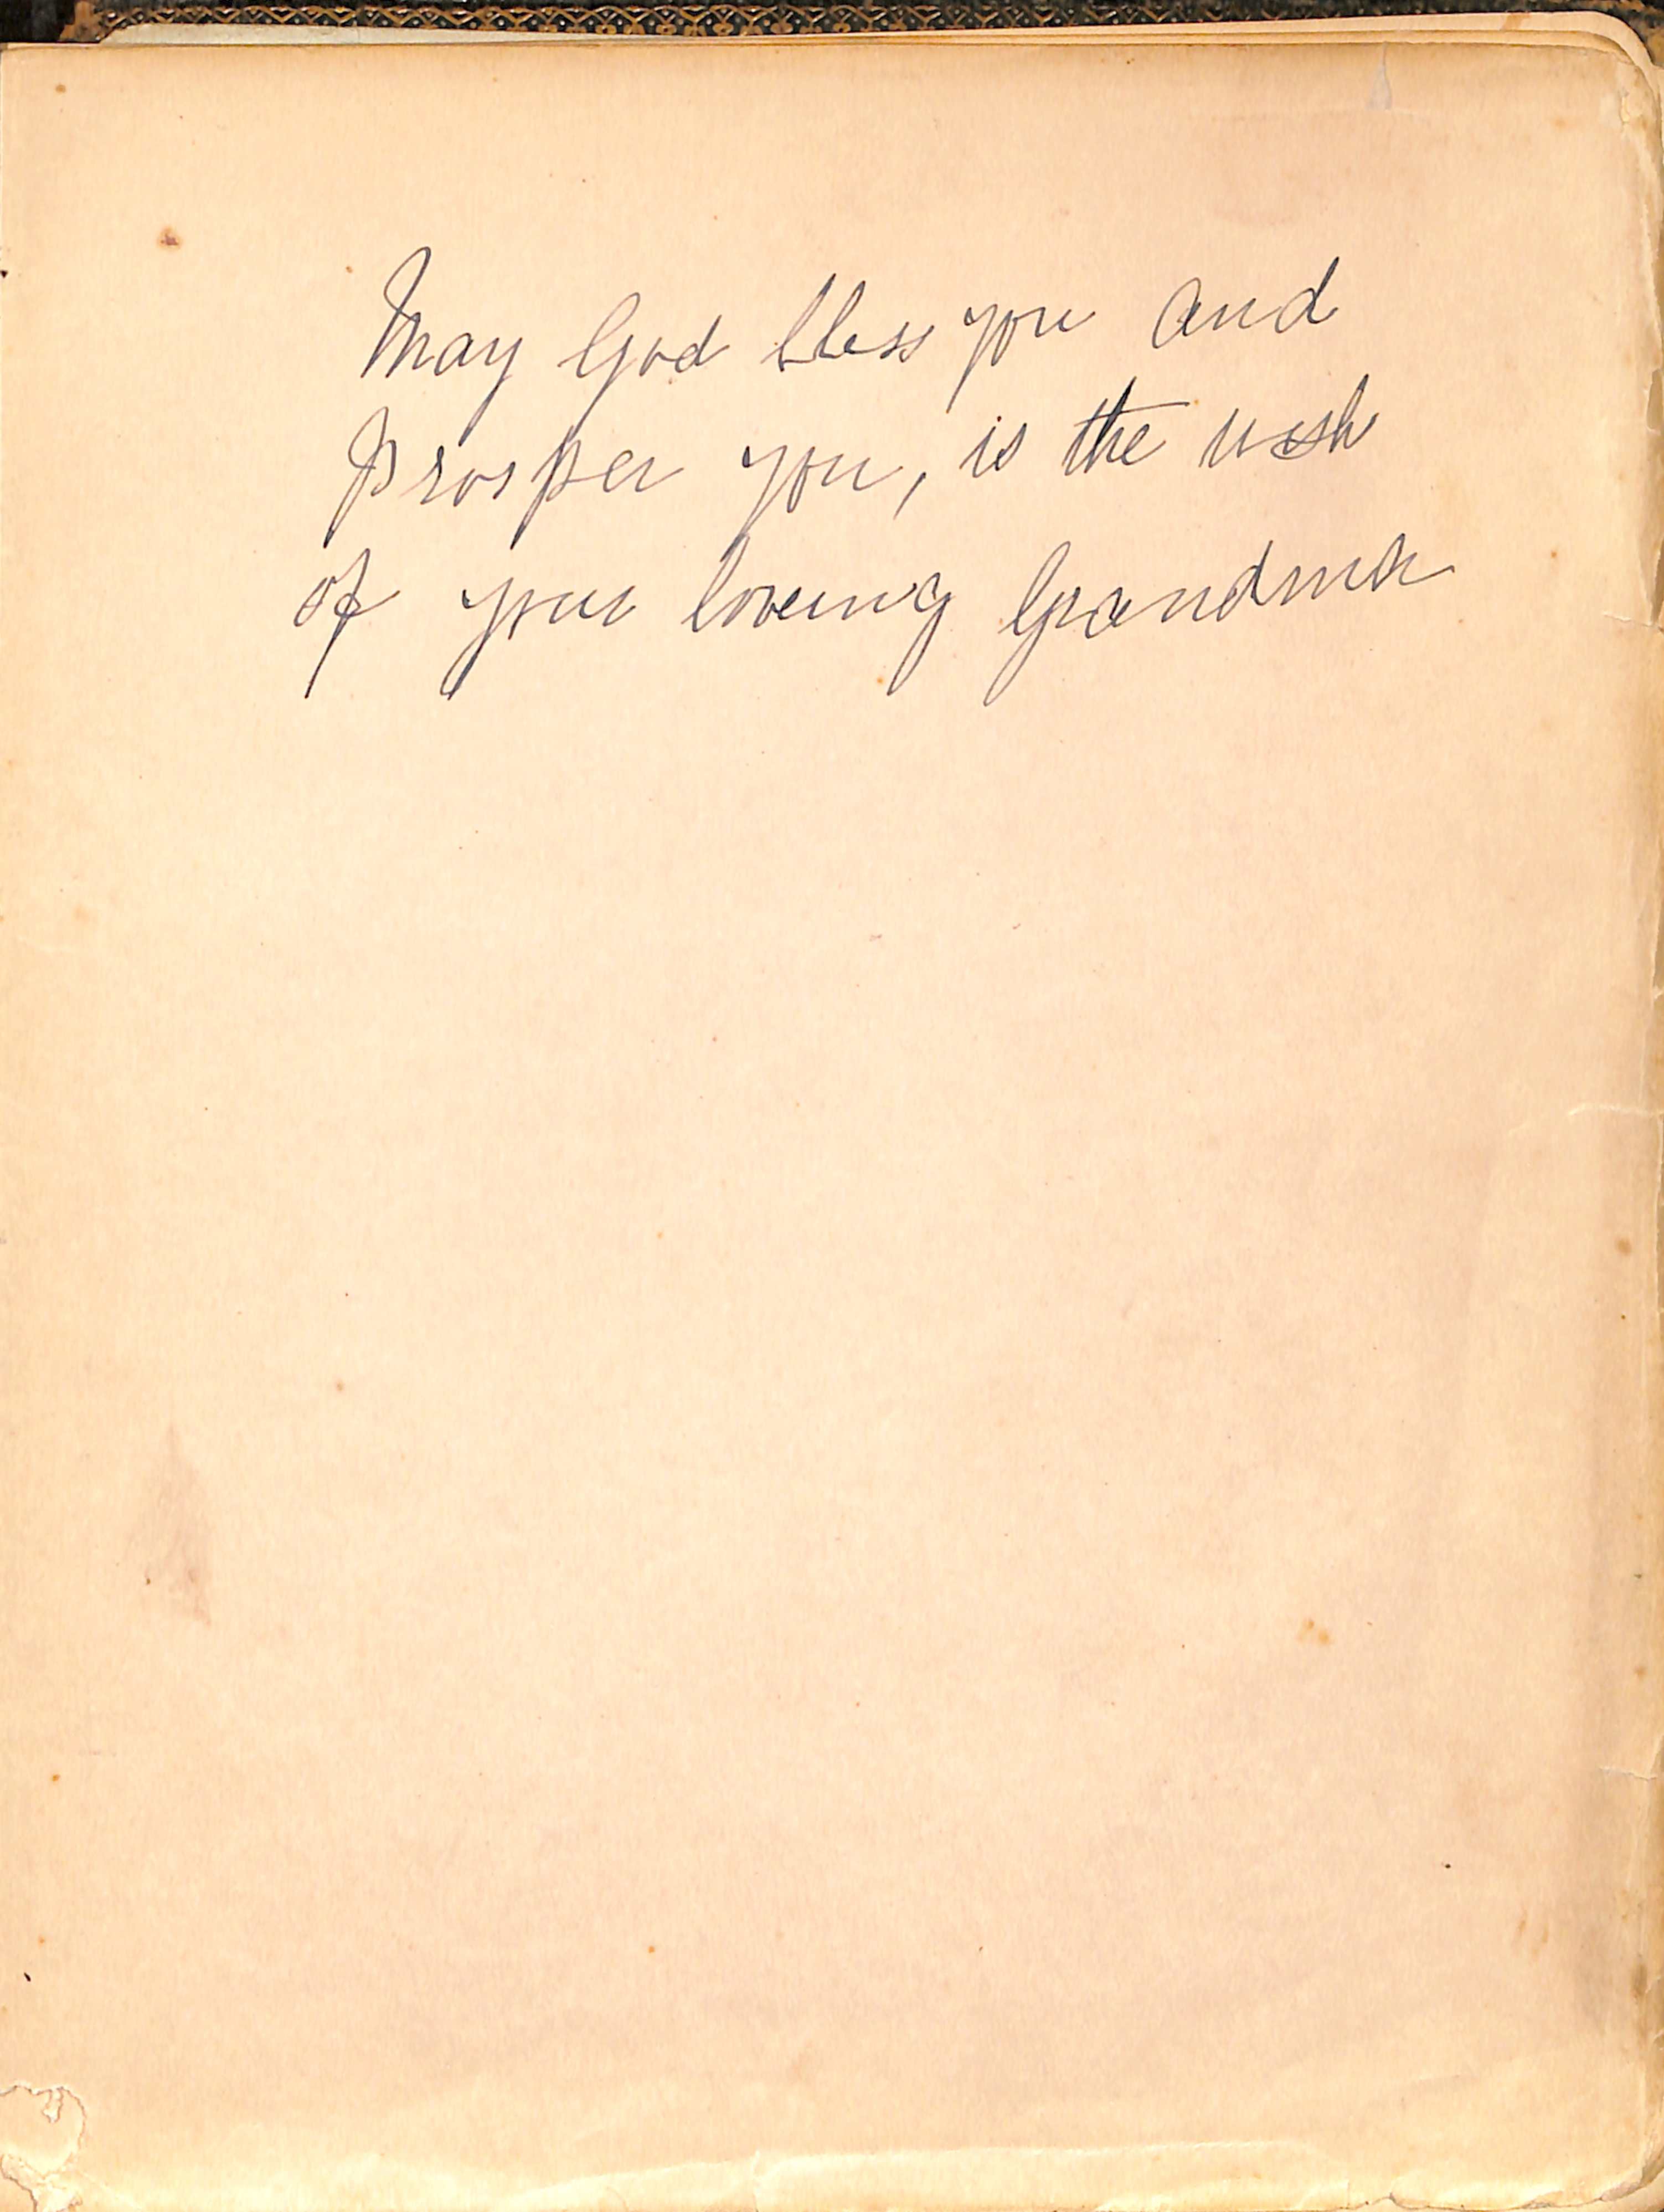 May God bless you and
prosper you, is the wish
of your loveing Grandma